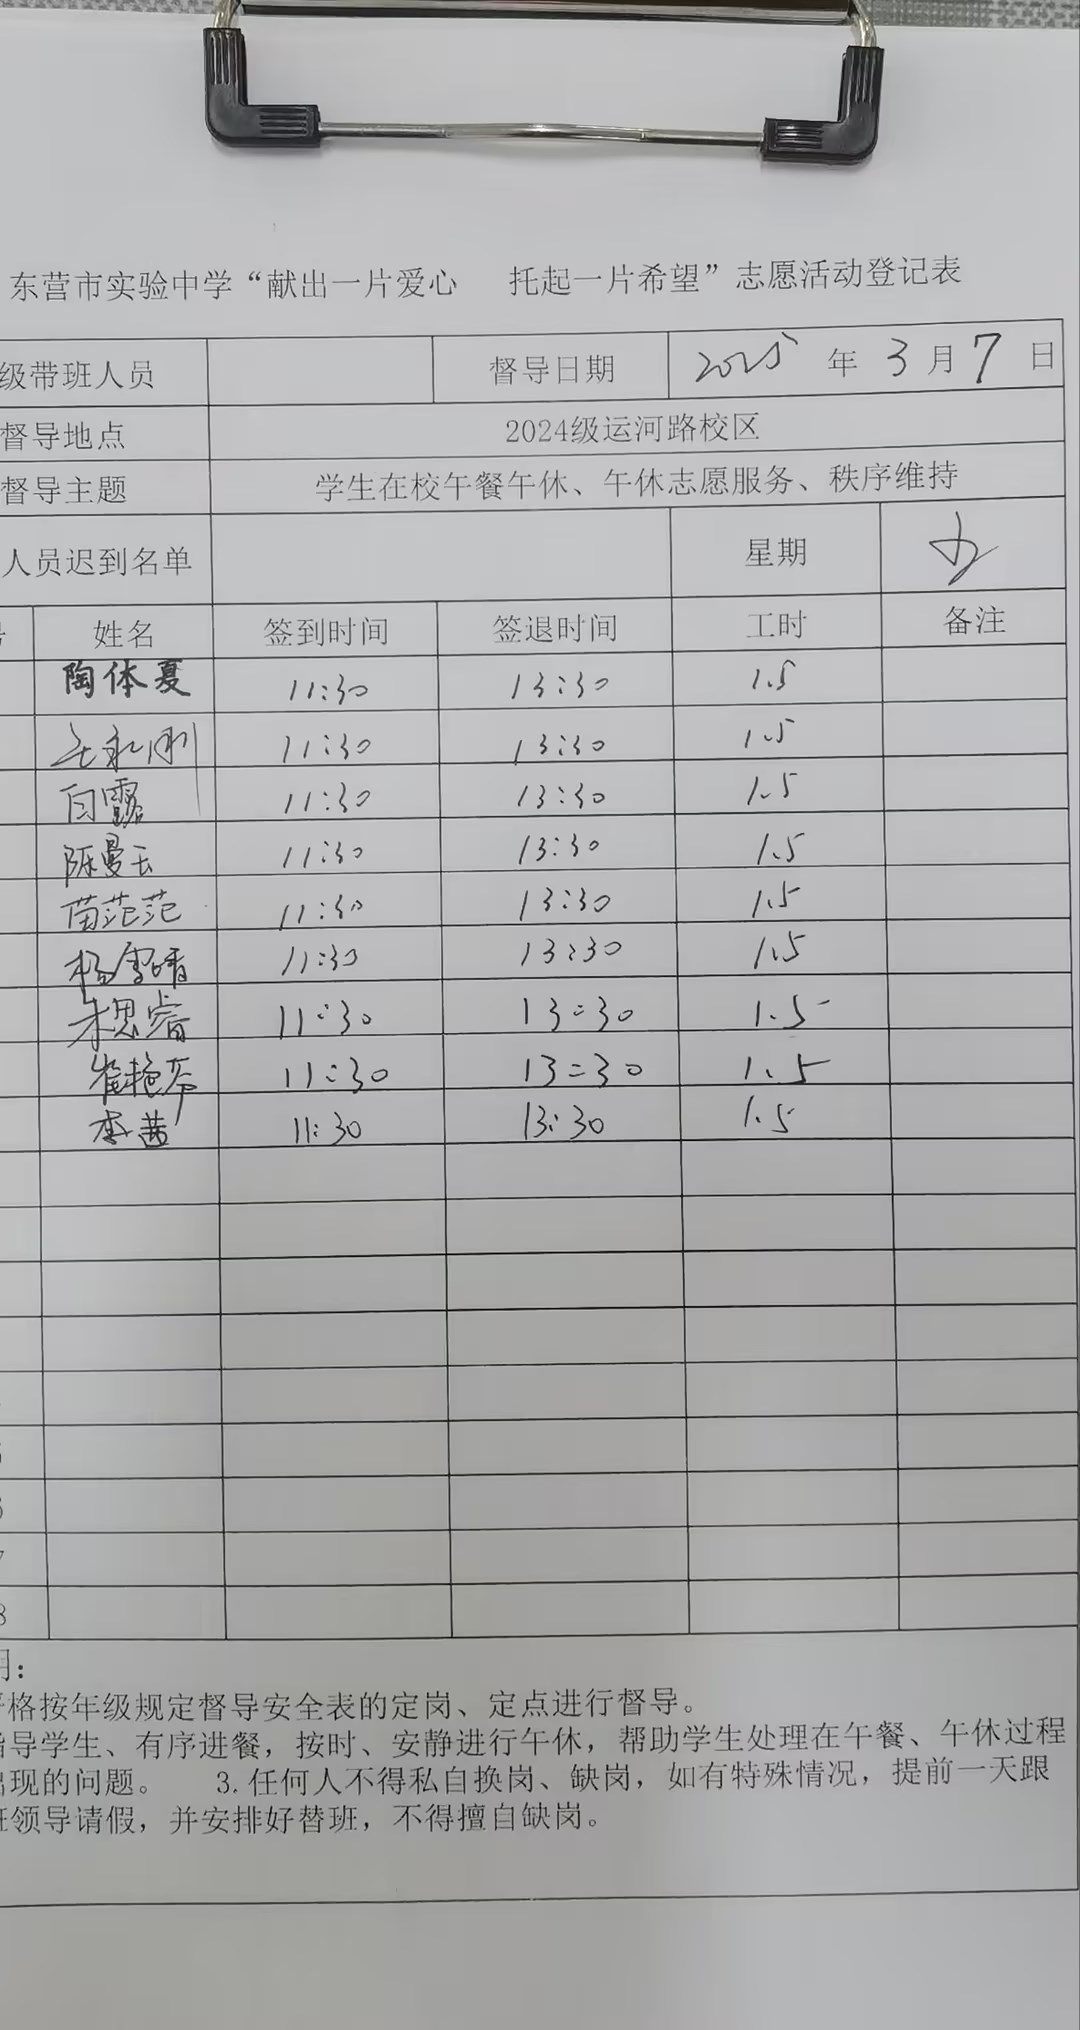 东营市实验中学“献出一片爱心 托起一片希望”志愿活动登记表
级带班人员 督导日期 2025年3月7日
督导地点 2024级运河路校区
督导主题 学生在校午餐午休、午休志愿服务、秩序维持
人员迟到名单 星期 五
姓名 签到时间 签退时间 工时 备注
陶体夏 11:30 13:30 1.5
11:30 13:30 1.5
白露 11:30 13:30 1.5
陈曼玉 11:30 13:30 1.5
苗范范 11:30 13:30 1.5
杨雪晴 11:30 13:30 1.5
朱思睿 11:30 13:30 1.5
崔艳芬 11:30 13:30 1.5
李茜 11:30 13:30 1.5
7
8
明：
严格按年级规定督导安全表的定岗、定点进行督导。
指导学生、有序进餐，按时、安静进行午休，帮助学生处理在午餐、午休过程
出现的问题。 3.任何人不得私自换岗、缺岗，如有特殊情况，提前一天跟
班领导请假，并安排好替班，不得擅自缺岗。